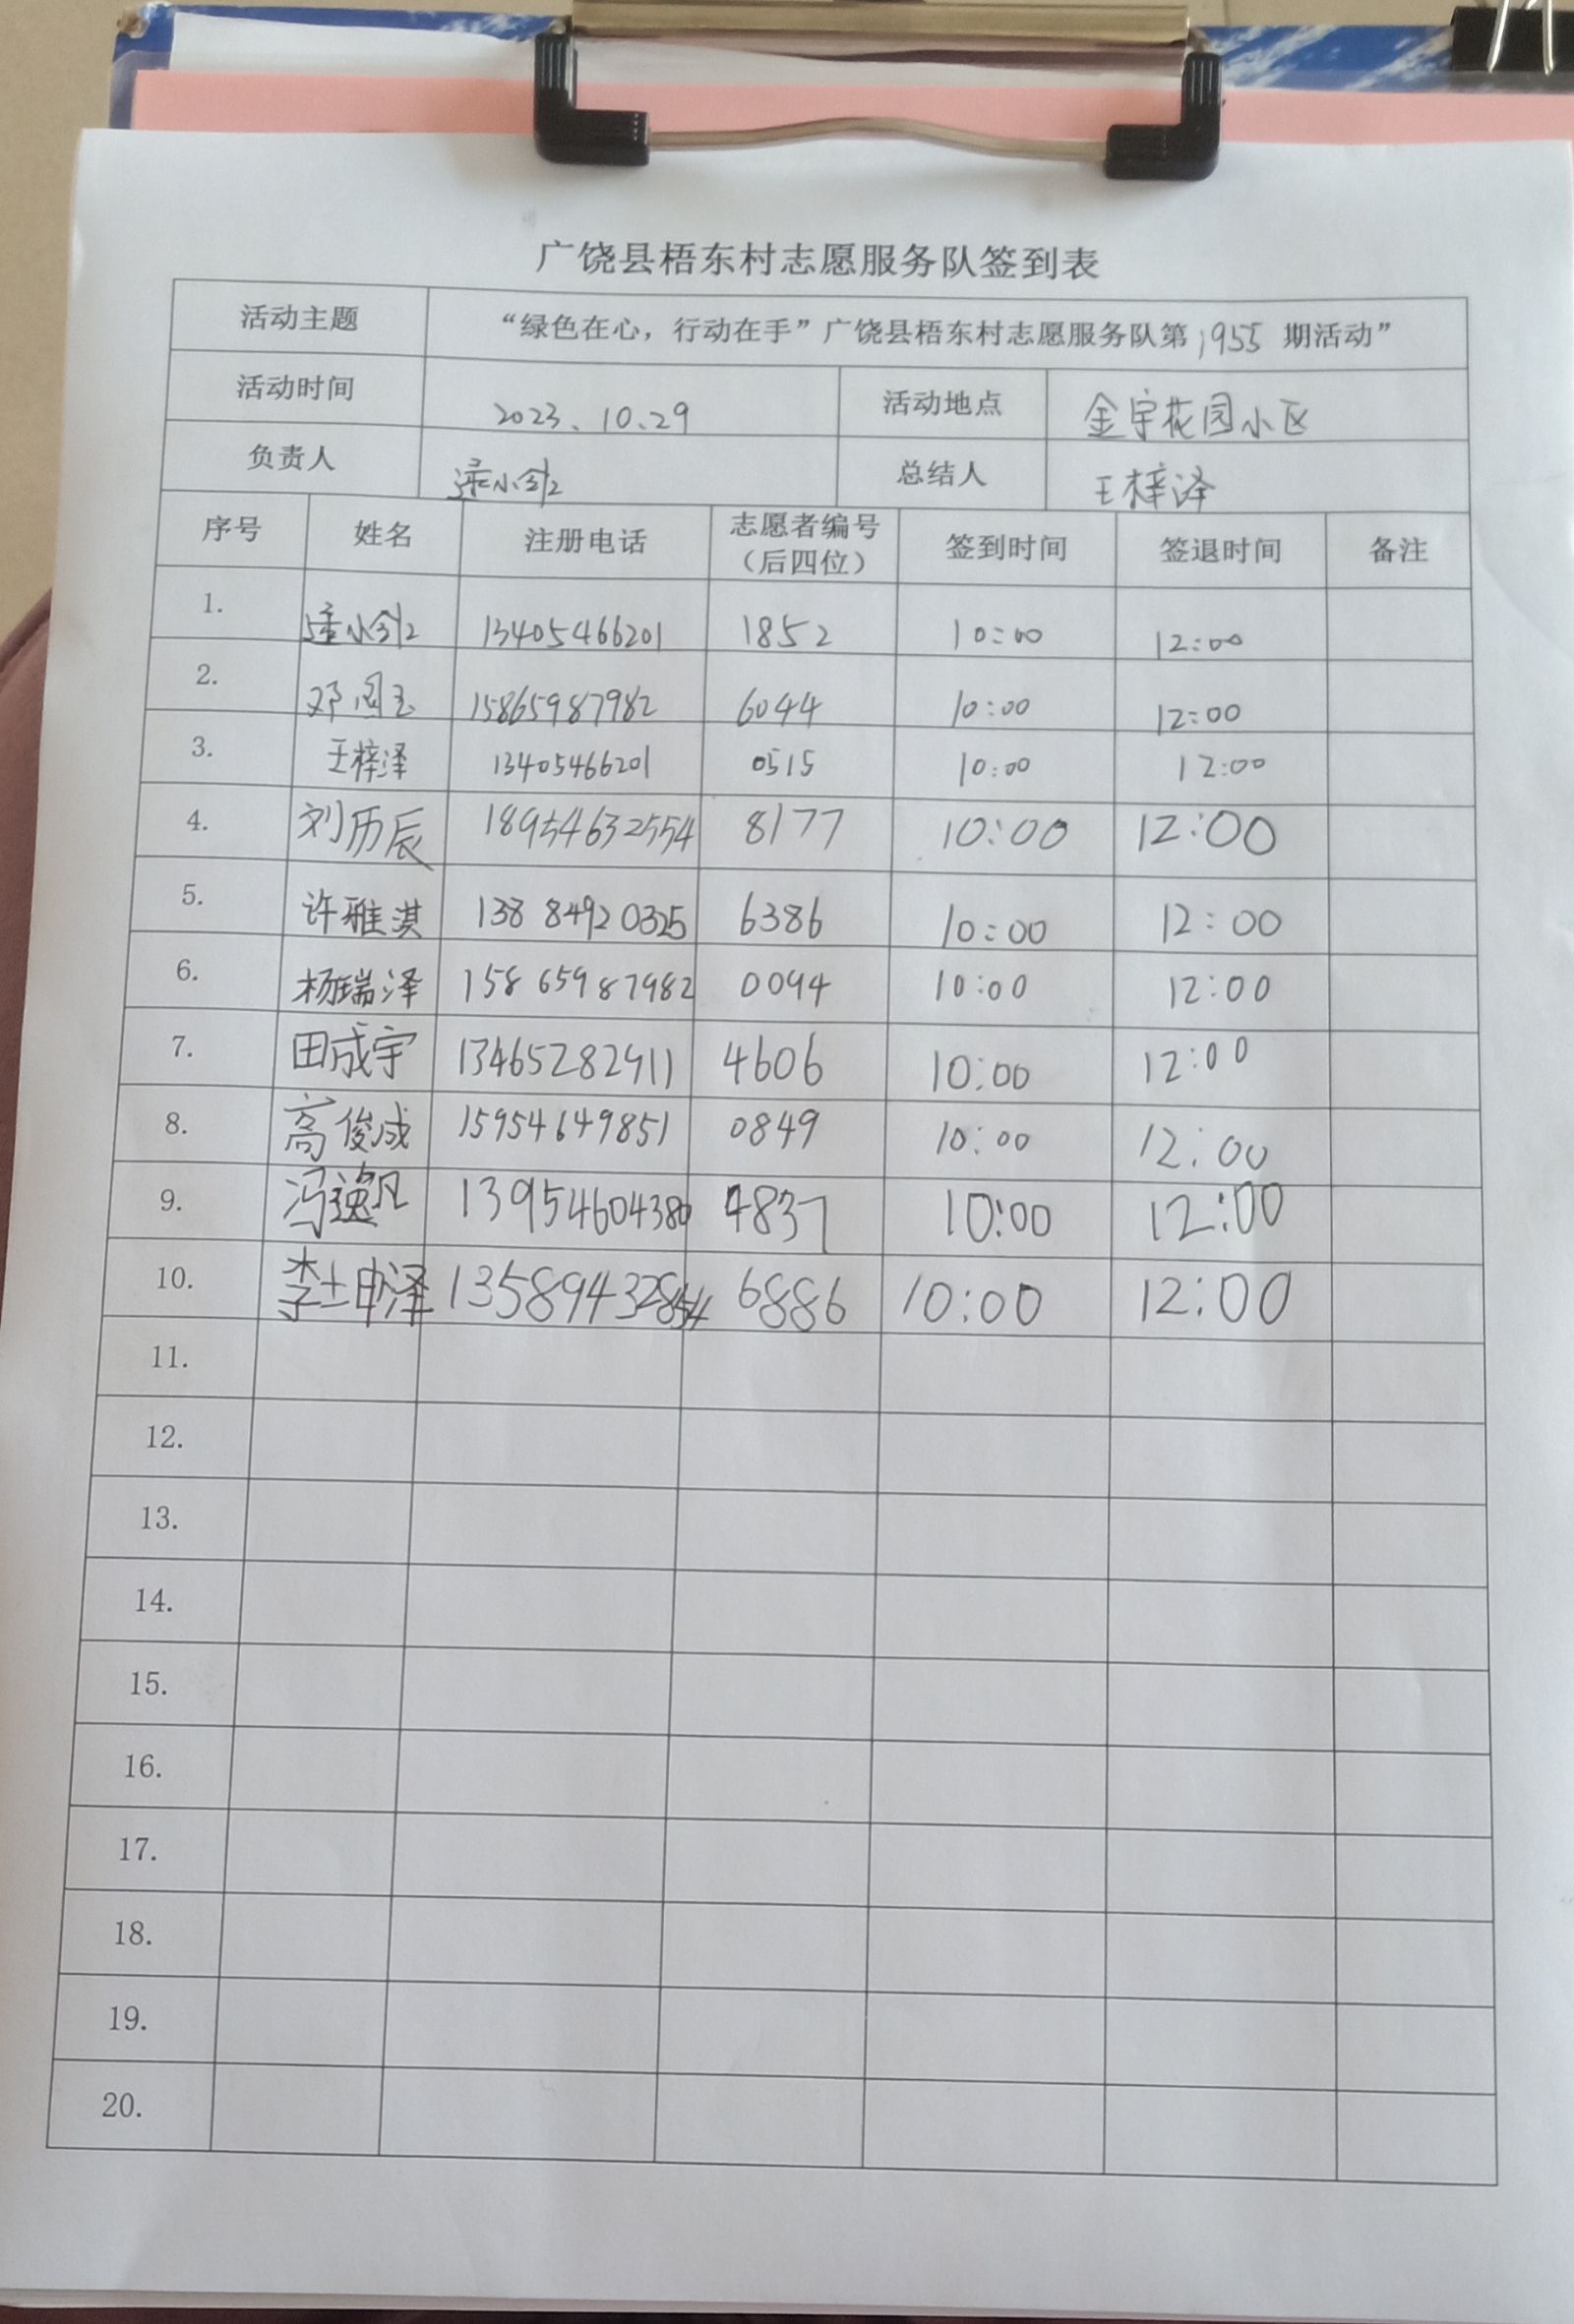 广饶县梧东村志愿服务队签到表
活动主题 “绿色在心，行动在手”广饶县梧东村志愿服务队第1955期活动”
活动时间 2023、10、29 活动地点 金宇花园小区
负责人 总结人 王梓泽
序号 姓名 注册电话 志愿者编号（后四位） 签到时间 签退时间 备注
1. 13405466201 1852 10:00 12:00
2. 15865987982 6044 10:00 12:00
3. 王梓泽 13405466201 0515 10:00 12:00
4. 刘历辰 18954632554 8177 10:00 12:00
5. 许雅淇 13884920325 6386 10:00 12:00
6. 杨瑞泽 15865987982 0094 10:00 12:00
7. 田成宇 13465282911 4606 10:00 12:00
8. 高俊成 15954649851 0849 10:00 12:00
9. 冯逸凡 13954604380 4837 10:00 12:00
10. 李坤泽 13589432854 6886 10:00 12:00
11.
12.
13.
14.
15.
16.
17.
18.
19.
20.